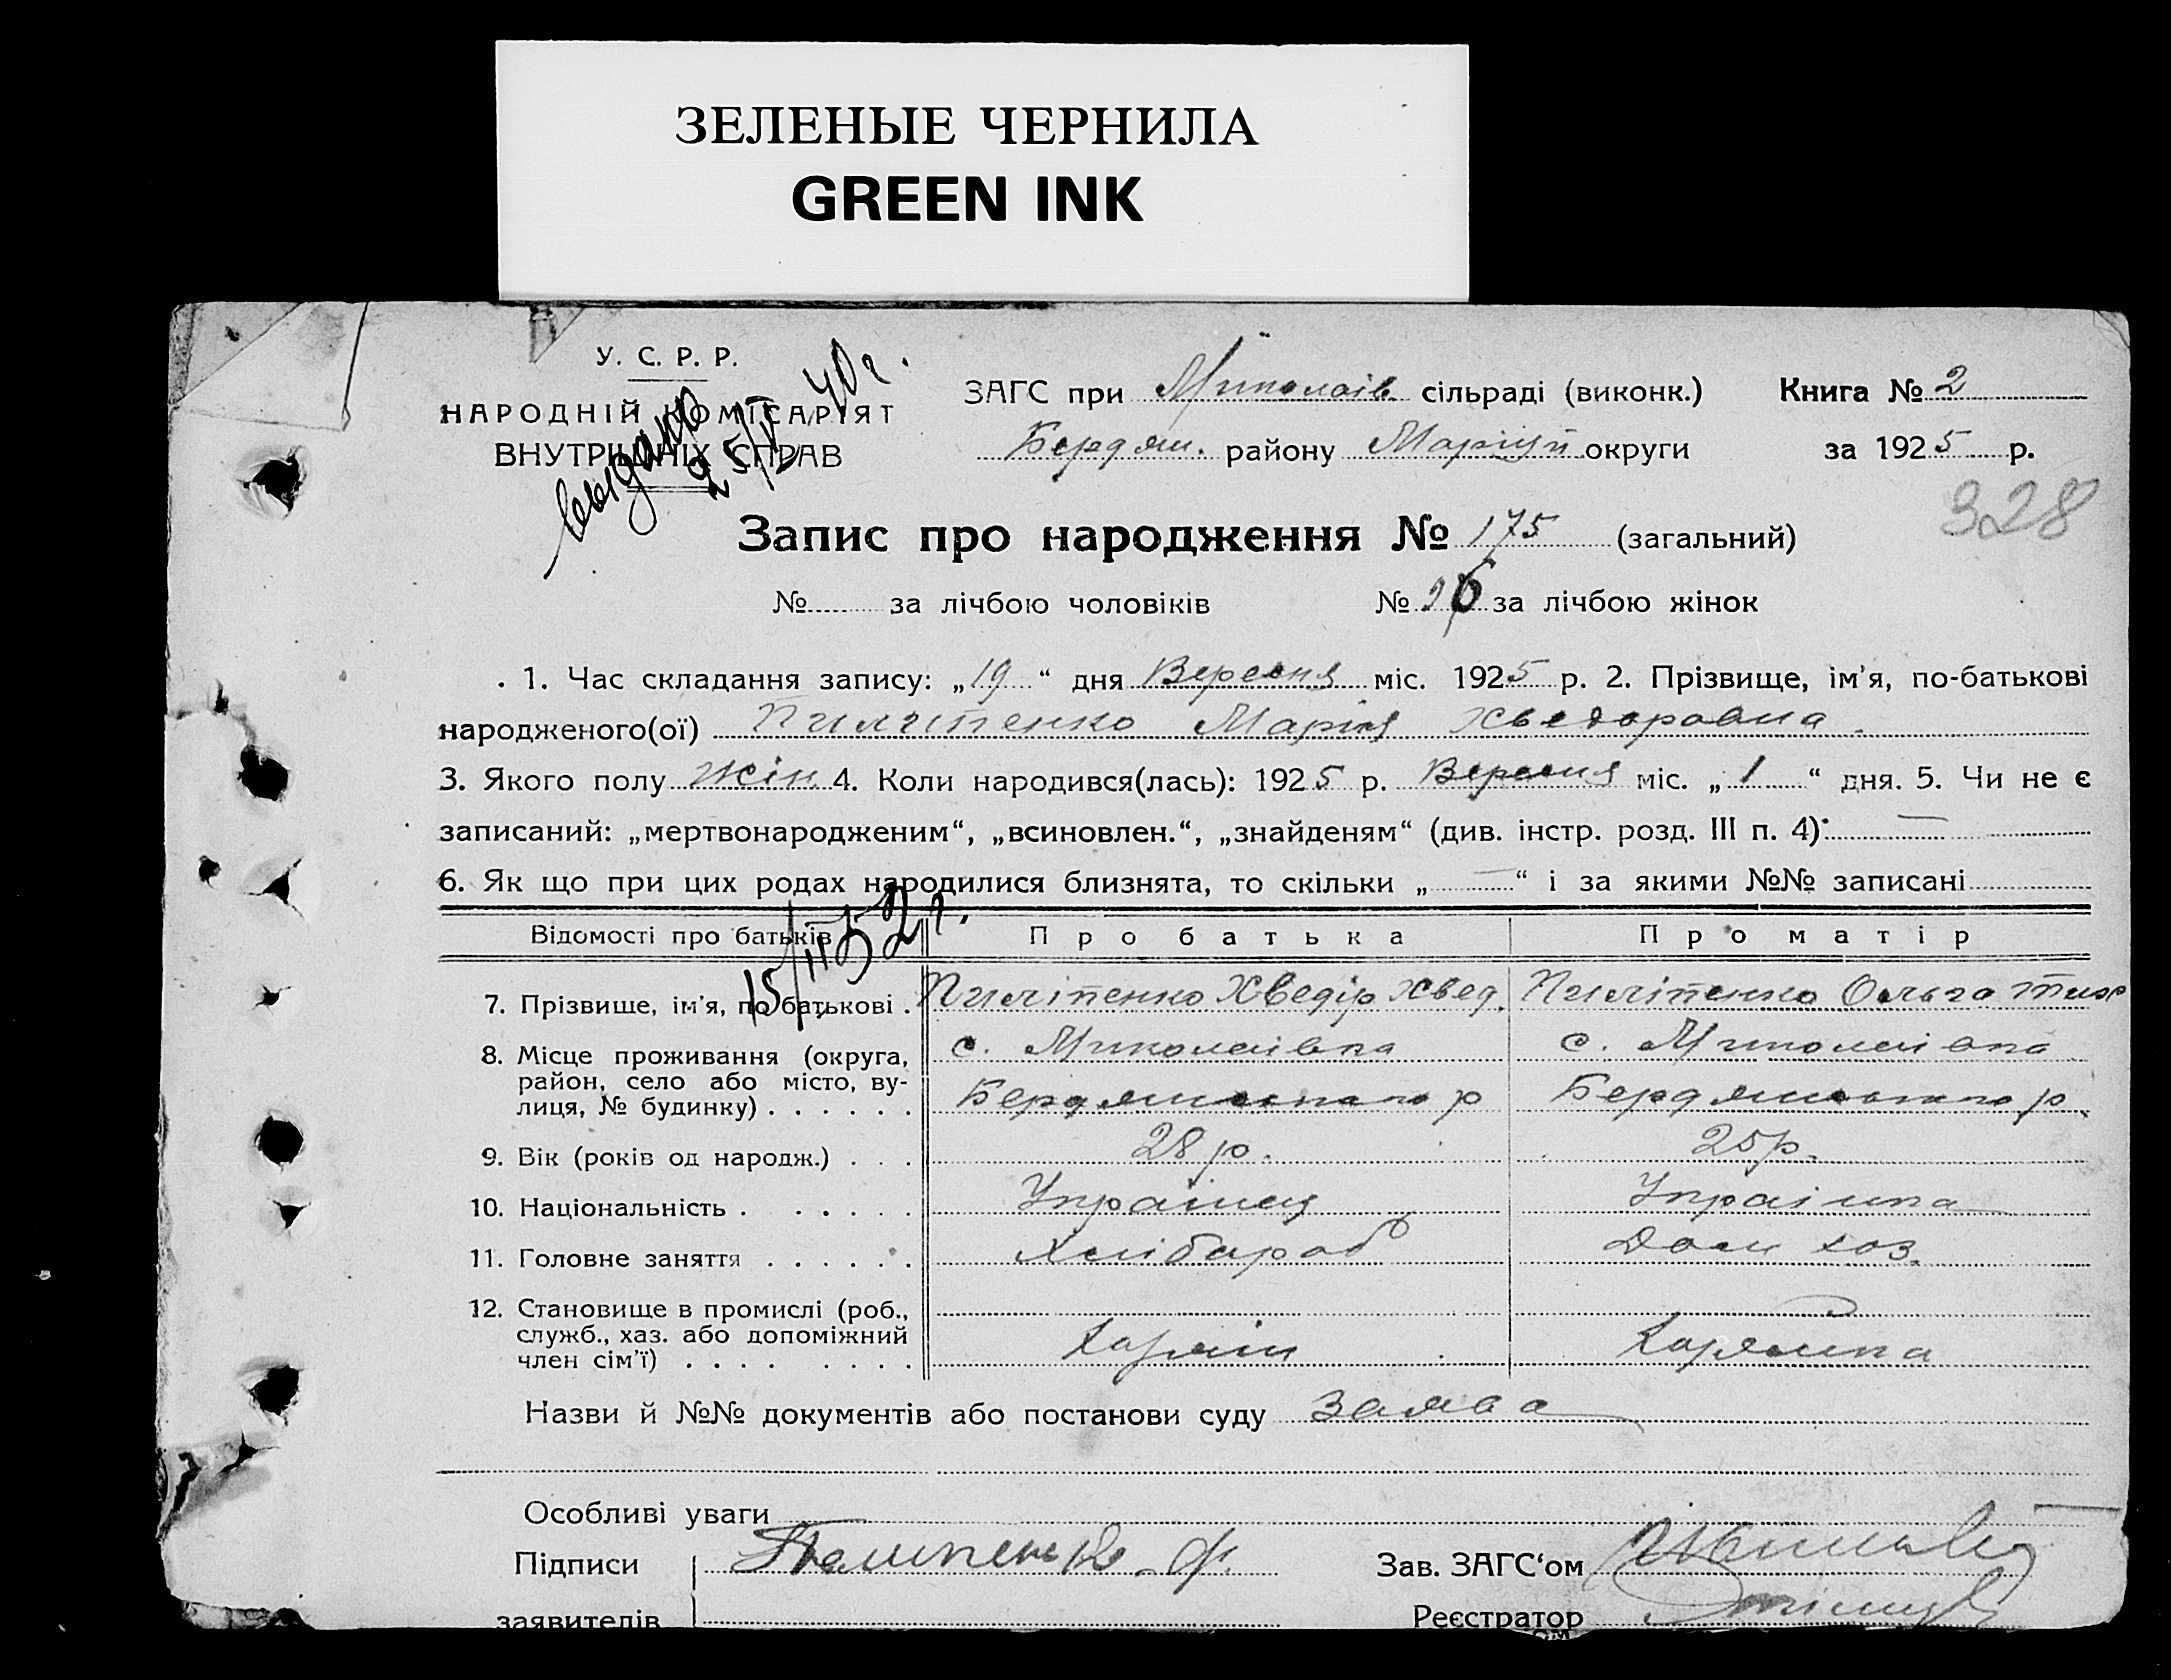 ЗЕЛЕНЫЕ ЧЕРНИЛА
GREEN INK
У. С. Р. Р.
НАРОДНІЙ КОМІСАРІЯТ
ВНУТРІШНІХ СПРАВ
выдано
25/IV 40 г.
ЗАГС при Миколаїв. сільраді (виконк.) Книга № 2
Бердян. району Маріуп округи за 1925 р.
328
Запис про народження № 175 (загальний)
№ за лічбою чоловіків № 96 за лічбою жінок
1. Час складання запису: „19“ дня Вересня міс. 1925 р. 2. Прізвище, ім'я, по-батькові
народженого(ої) Пилипенко Марія Хведоровна
3. Якого полу жін. 4. Коли народився(лась): 1925 р. Вересня міс. „1“ дня. 5. Чи не є
записаний: „мертвонародженим“, „всиновлен.“, „знайденям“ (див. інстр. розд. III п. 4): —
6. Як що при цих родах народилися близнята, то скільки „—“ і за якими №№ записані
15/II 52 г.
Відомості про батьків Про батька Про матір
7. Прізвище, ім'я, по батькові . Пиліпенко Хведір Хвед. Пиліпенко Ольга Тим
8. Місце проживання (округа, с. Миколаівка с. Миколаівка
район, село або місто, ву-
лиця, № будинку) . . . . . . Бердянського р Бердянського р.
9. Вік (років од народж.) . . . 28 р. 25 р.
10. Національність . . . . . . Українец Українка
11. Головне заняття . . . . . . Хлібороб Дом хоз.
12. Становище в промислі (роб.,
служб., хаз. або допоміжний
член сім'ї) . . . . . . . . Хазяїн Хазяйка
Назви й №№ документів або постанови суду Заява
Особливі уваги
Підписи Пилипенко Ф. Зав. ЗАГС'ом
заявителів Реєстратор